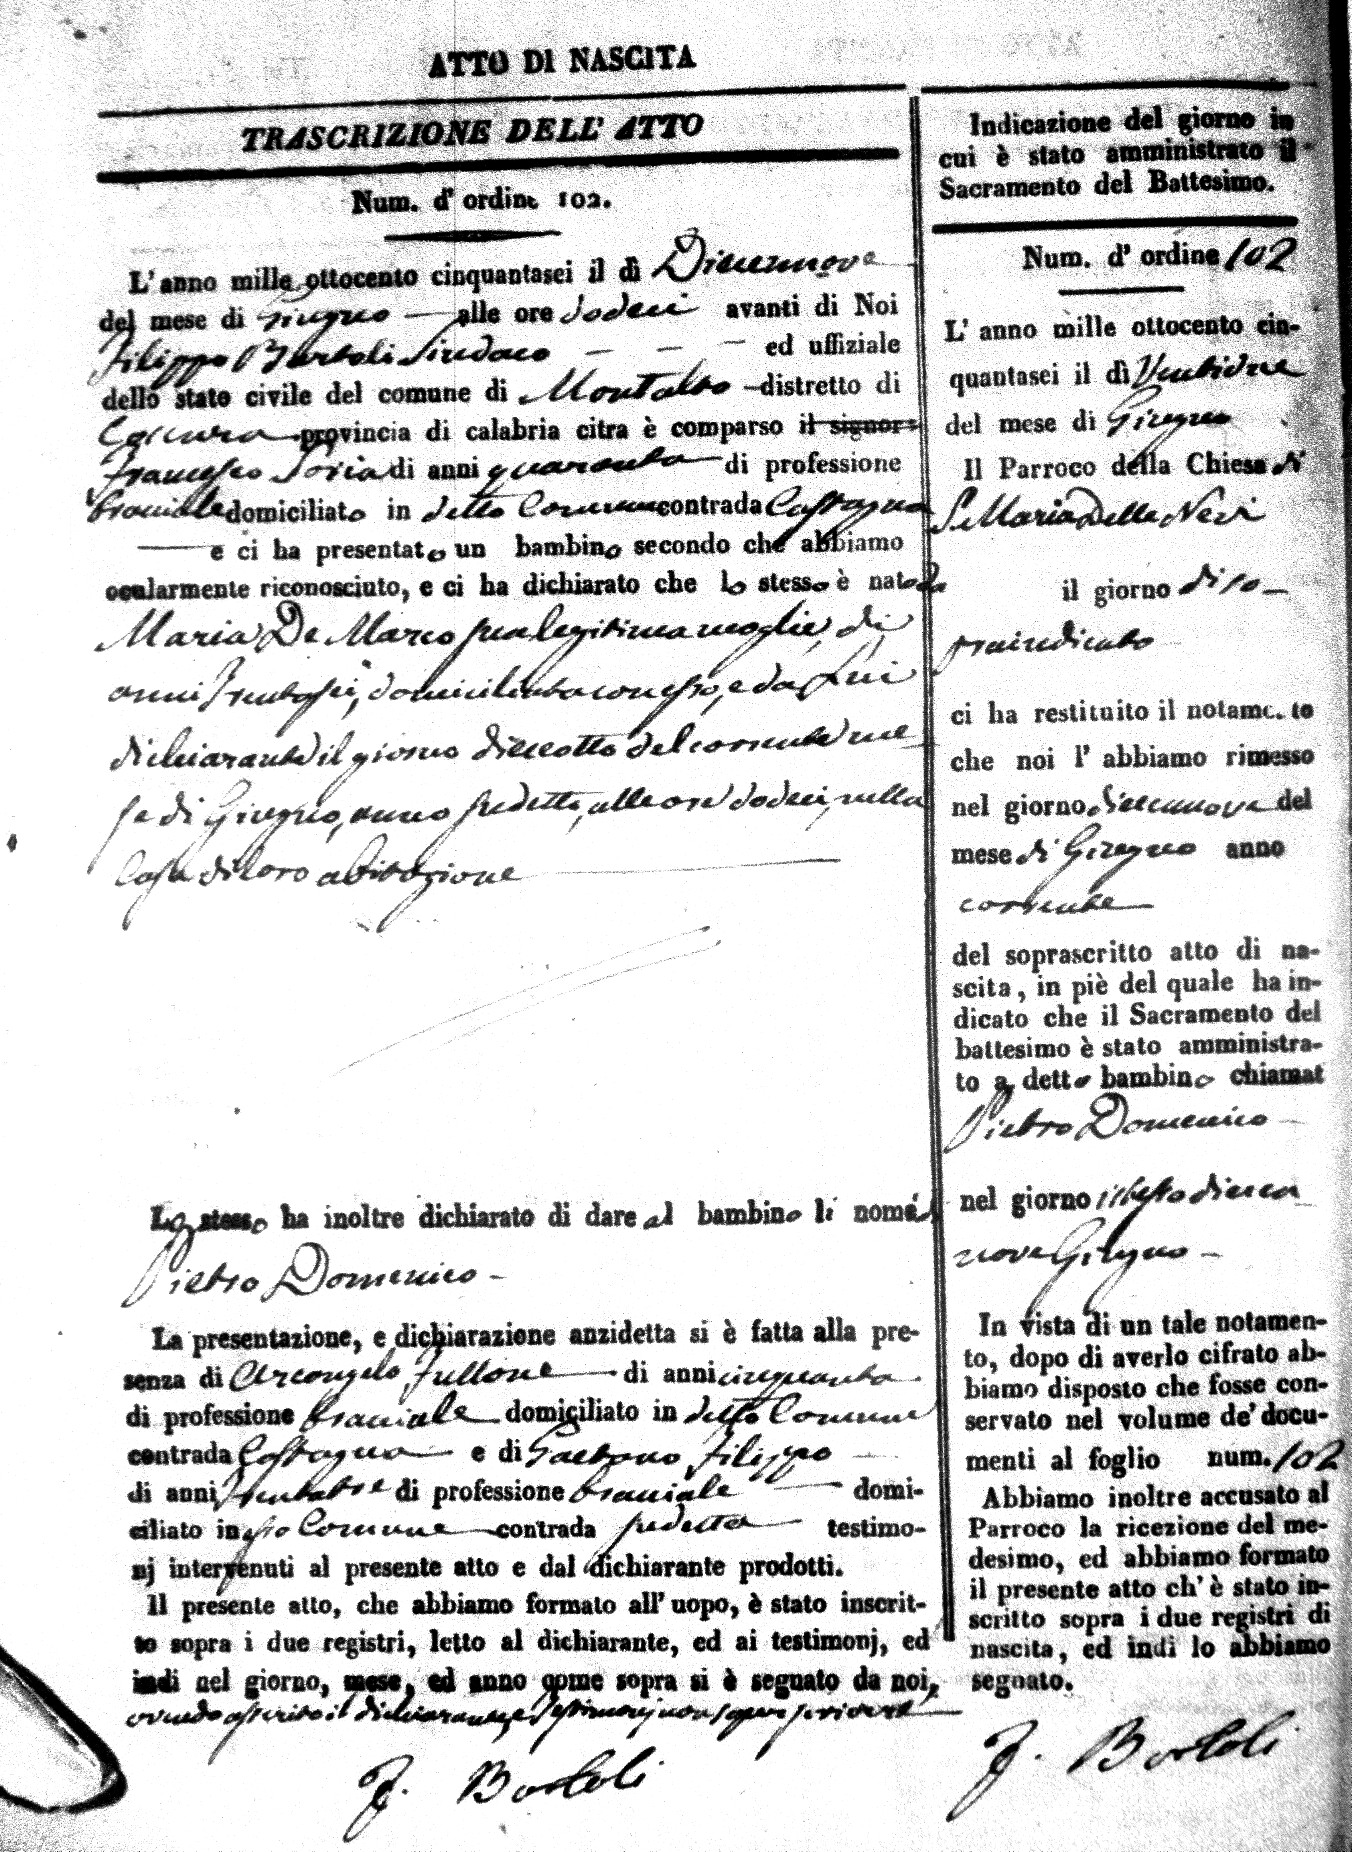 ATTO DI NASCITA
TRASCRIZIONE DELL' ATTO
Num. d' ordine 102.
L'anno mille ottocento cinquantasei il dì Diecennove
del mese di Giugno alle ore dodeci avanti di Noi
Filippo Bartoli Sindaco ed uffiziale
dello stato civile del comune di Montalto distretto di
Cosenza provincia di calabria citra è comparso il signor
Francesco Soria di anni quaranta di professione
braciale domiciliato in detto Comune contrada Castagna
e ci ha presentato un bambino secondo che abbiamo
ocularmente riconosciuto, e ci ha dichiarato che lo stesso è nato da
Maria De Marco sua legitima moglie, di
anni trentasei, domiciliata con esso, e da lui
dichiarante il giorno dieciotto del corrente me
se di Giugno, anno sudetto, alle ore dodeci, nella
Casa di loro abitazione
Lo stesso ha inoltre dichiarato di dare al bambino li nomi di
Pietro Domenico
La presentazione, e dichiarazione anzidetta si è fatta alla pre-
senza di Arcangelo Fullone di anni cinquanta
di professione braciale domiciliato in detto Comune
contrada Castagna e di Gaetano Filippo
di anni trentatre di professione braciale domi-
ciliato in esso Comune contrada sudetta testimo-
nj intervenuti al presente atto e dal dichiarante prodotti.
Il presente atto, che abbiamo formato all' uopo, è stato inscrit-
to sopra i due registri, letto al dichiarante, ed ai testimonj, ed
indi nel giorno, mese, ed anno come sopra si è segnato da noi,
avendo asserito il dichiarante, e testimonj non saper scrivere
F. Bartoli
Indicazione del giorno in
cui è stato amministrato il
Sacramento del Battesimo.
Num. d' ordine 102
L' anno mille ottocento cin-
quantasei il dì Ventidue
del mese di Giugno
Il Parroco della Chiesa di
S. Maria delle Nevi
il giorno di so
praindicato
ci ha restituito il notamento
che noi l' abbiamo rimesso
nel giorno diecennove del
mese di Giugno anno
corrente
del soprascritto atto di na-
scita, in piè del quale ha in-
dicato che il Sacramento del
battesimo è stato amministra-
to a detto bambino chiamat
Pietro Domenico
nel giorno istesso diecen
nove Giugno
In vista di un tale notamen-
to, dopo di averlo cifrato ab-
biamo disposto che fosse con-
servato nel volume de' docu-
menti al foglio num. 102
Abbiamo inoltre accusato al
Parroco la ricezione del me-
desimo, ed abbiamo formato
il presente atto ch' è stato in-
scritto sopra i due registri di
nascita, ed indi lo abbiamo
segnato.
F. Bartoli